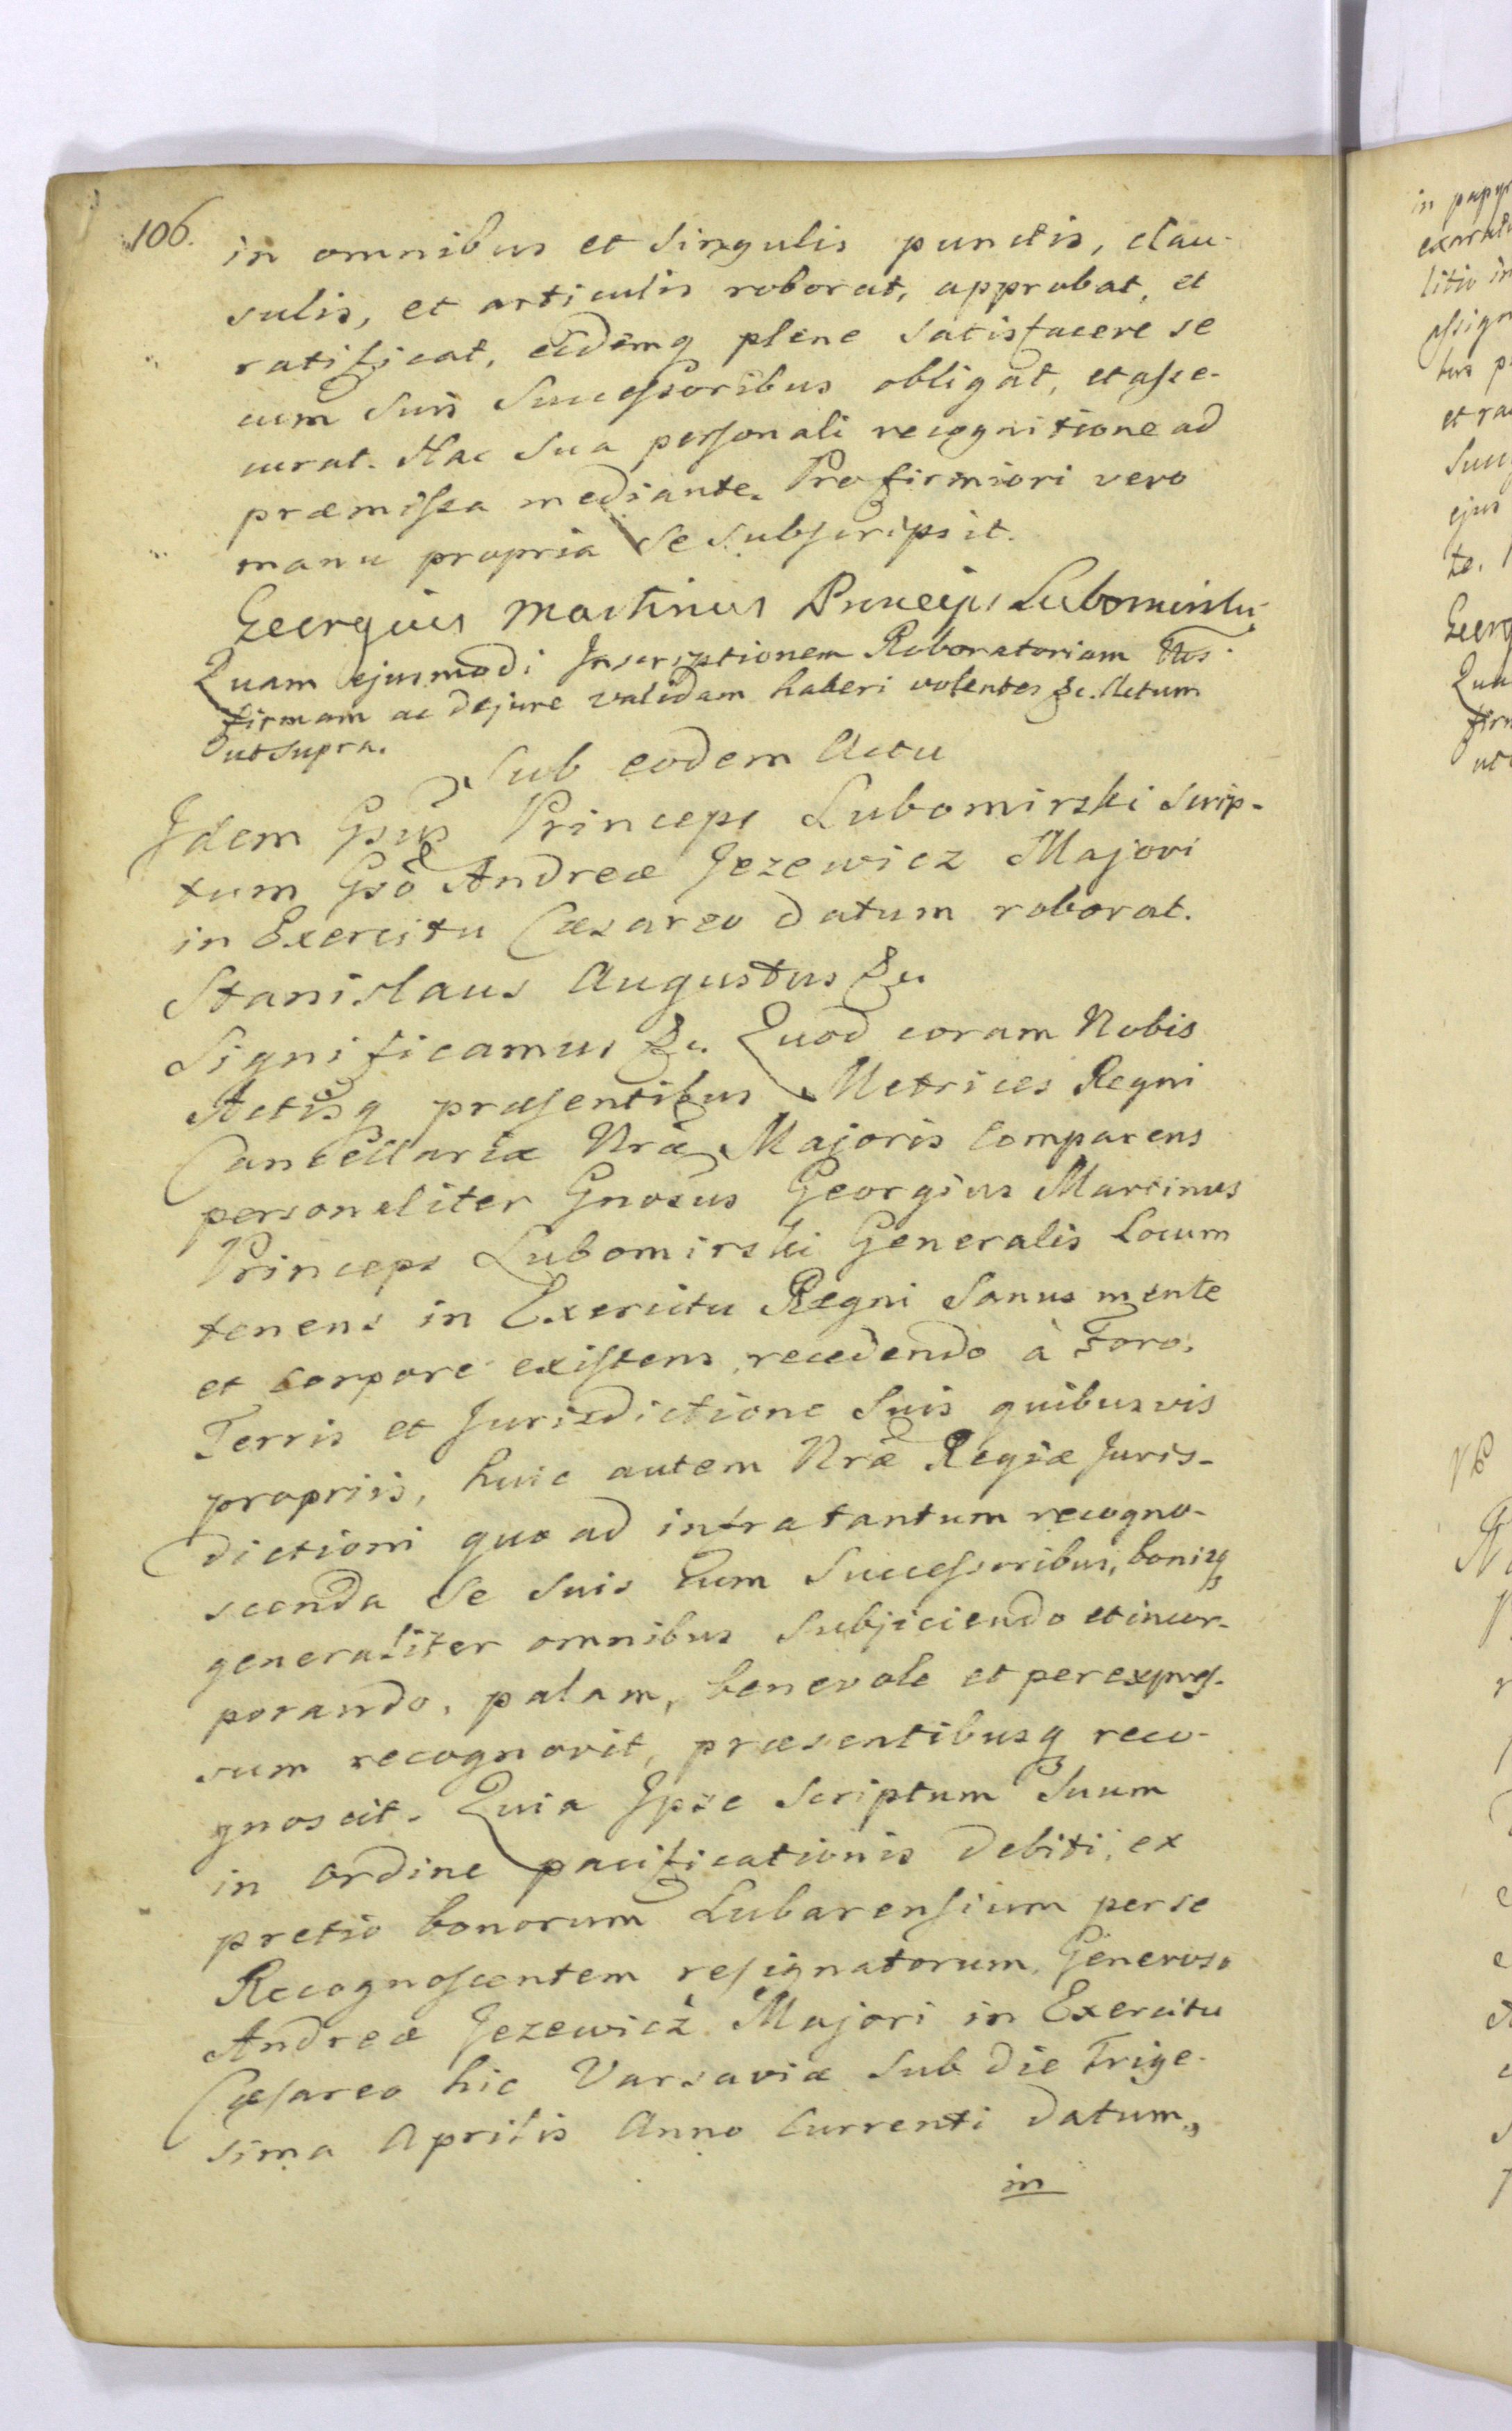 106.
in omnibus et Singulis punctis, clau-
sulis, et articulis roborat, approbat, et
ratificat, eidemq plene Satisfacere se
cum Suis Successoribus obligat, et asse-
curat. Hac Sua personali recognitione ad
præmissa mediante. Pro firmiori vero
manu propria Se Subscripsit.
Georgius Martinus Princeps Lubomirski
Quam ejusmodi Inscriptionem Roboratoriam Nos
firmam ac dejure validam haberi volentes &c. Actum
ut Supra.
Sub eodem Actu
Idem Gsus Princeps Lubomirski Scrip-
tum Gso Andreæ Jezewicz Majori
in Exercitu Cæsareo datum roborat.
Stanislaus Augustus &c.
Significamus &c. Quod coram Nobis
Actisq præsentibus Metrices Regni
Cancellariæ Nræ Majoris Comparens
personaliter Gnosus Georgius Martinus
Princeps Lubomirski Generalis Locum
tenens in Exercitu Regni Sanus mente
et corpore existens, recedendo à Foro,
Terris et Jurisdictione Suis quibusvis
propriis, huic autem Nræ Regiæ Juris-
dictioni quo ad infra tantum recogno-
scenda Se Suis cum Successoribus, bonisq
generaliter omnibus Subjiciendo et incor-
porando, palam, benevole et per expres-
sum recognovit, præsentibusq reco-
gnoscit. Quia Ipse Scriptum Suum
in ordine pacificationis debiti, ex
pretio bonorum Lubarensium per se
Recognoscentem resignatorum, Generoso
Andreæ Jezewicz Majori in Exercitu
Cæsareo hic Varsaviæ Sub die Trige-
sima Aprilis Anno Currenti datum,
in
in papyr
exarat
litio in
assign
tus p
et ra
Succ
ejus
te.
Georg
Qua
firm
ut